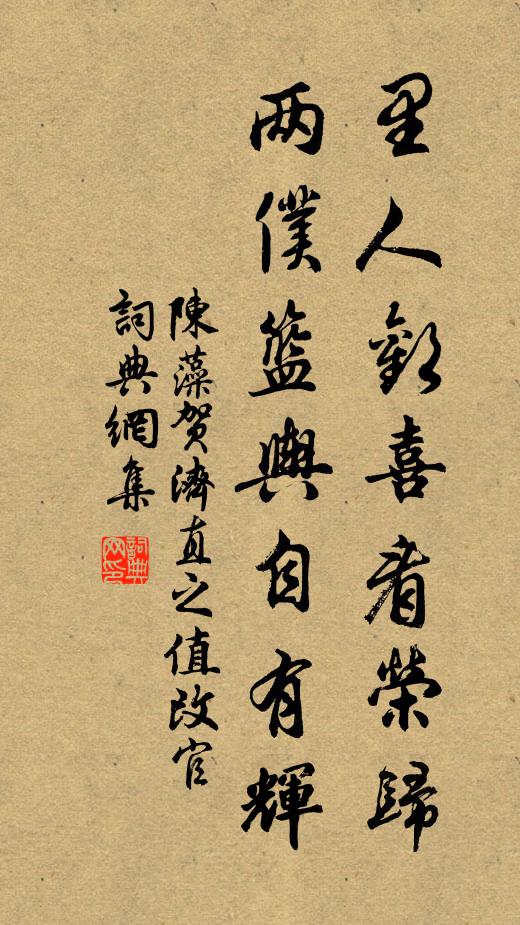 里人歡喜看榮歸
两僕籃輿自有輝
陳藻賀濟直之值改官
詞典網集
詞典网印